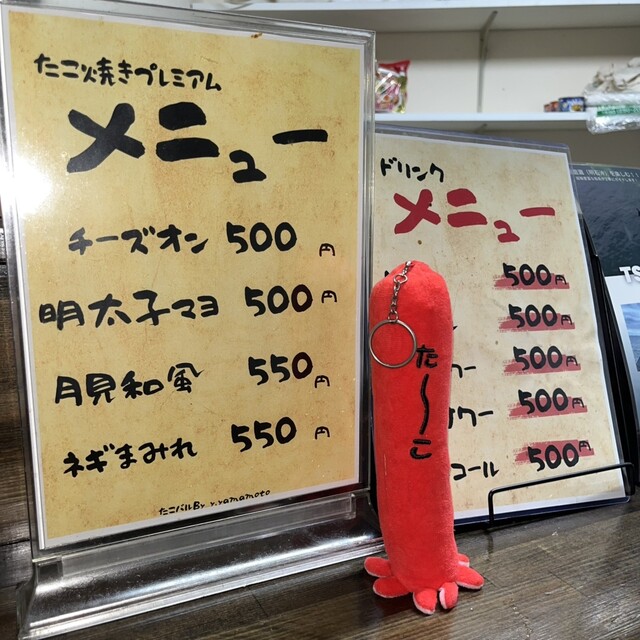 たこ焼きプレミアム
メニュー
チーズオン 500円
明太子マヨ 500円
月見和風 550円
ネギまみれ 550円
たこバル By y.yamamoto
ドリンク
メニュー
500円
500円
500円
500円
コール 500円
た〜こ